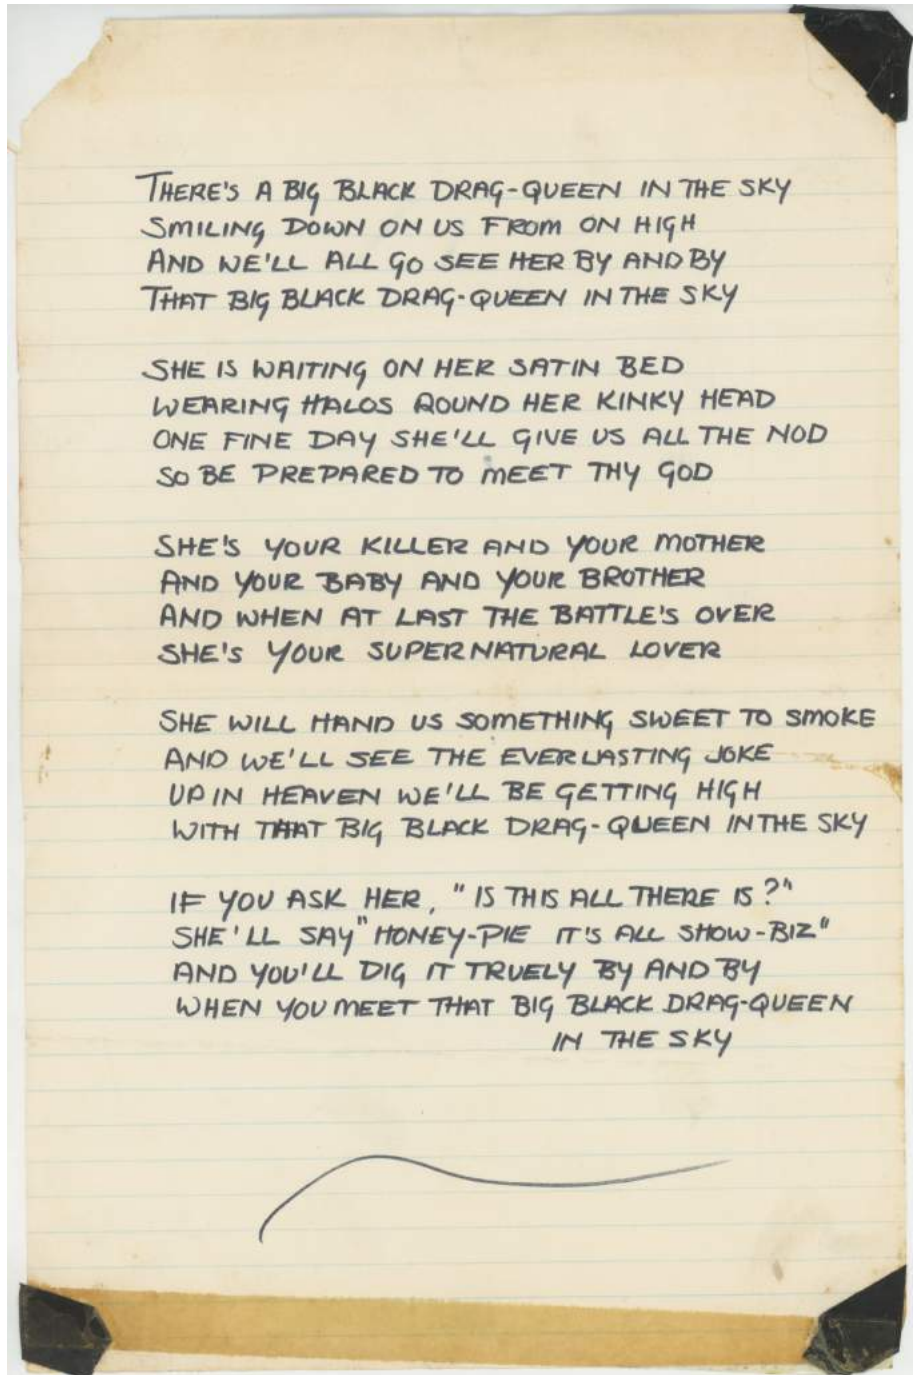 THERE'S A BIG BLACK DRAG-QUEEN IN THE SKY
SMILING DOWN ON US FROM ON HIGH
AND WE'LL ALL GO SEE HER BY AND BY
THAT BIG BLACK DRAG-QUEEN IN THE SKY
SHE IS WAITING ON HER SATIN BED
WEARING HALOS ROUND HER KINKY HEAD
ONE FINE DAY SHE'LL GIVE US ALL THE NOD
SO BE PREPARED TO MEET THY GOD
SHE'S YOUR KILLER AND YOUR MOTHER
AND YOUR BABY AND YOUR BROTHER
AND WHEN AT LAST THE BATTLE'S OVER
SHE'S YOUR SUPERNATURAL LOVER
SHE WILL HAND US SOMETHING SWEET TO SMOKE
AND WE'LL SEE THE EVERLASTING JOKE
UP IN HEAVEN WE'LL BE GETTING HIGH
WITH THAT BIG BLACK DRAG-QUEEN IN THE SKY
IF YOU ASK HER, "IS THIS ALL THERE IS?"
SHE'LL SAY "HONEY-PIE IT'S ALL SHOW-BIZ"
AND YOU'LL DIG IT TRUELY BY AND BY
WHEN YOU MEET THAT BIG BLACK DRAG-QUEEN
IN THE SKY